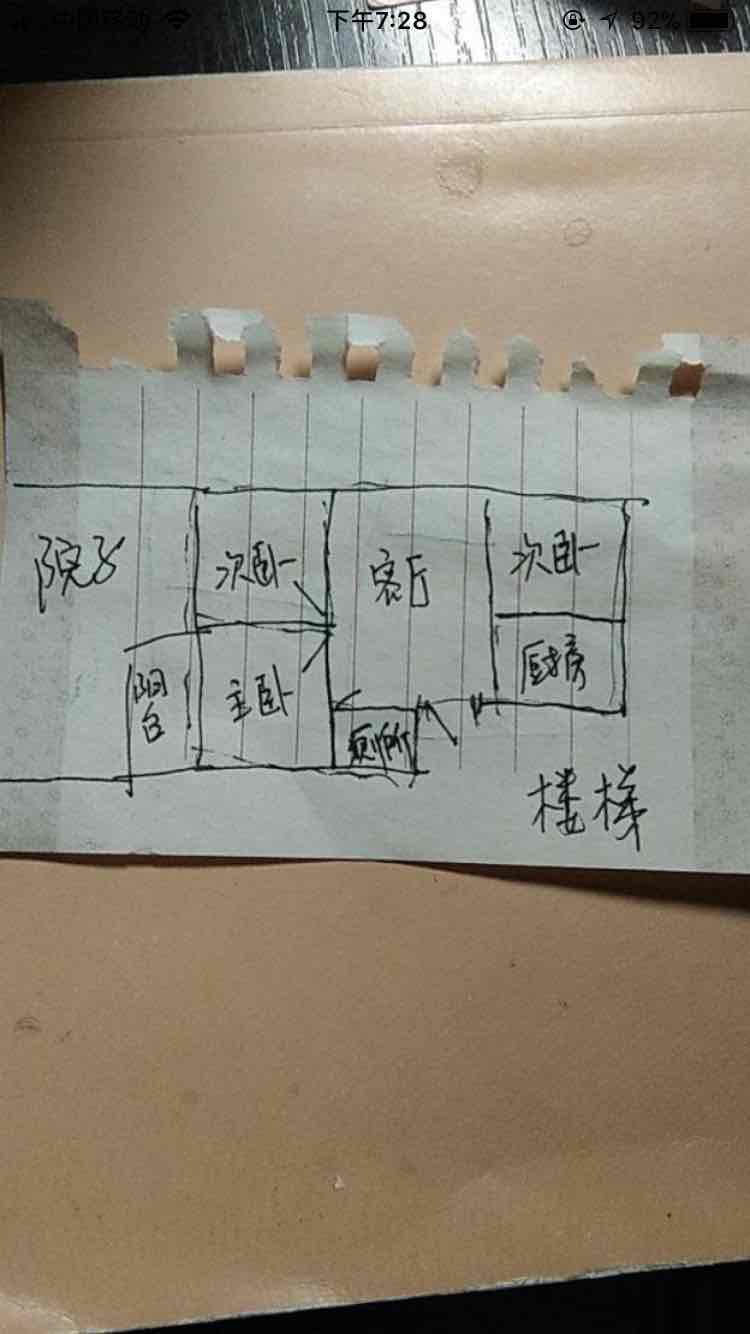 中国移动
下午7:28
92%
院子
次卧
客厅
次卧
阳台
主卧
厕所
厨房
楼梯